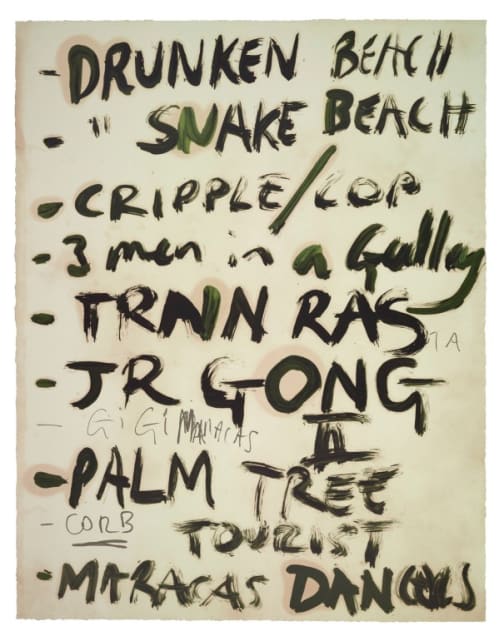 - DRUNKEN BEACH
- " SNAKE BEACH
- CRIPPLE/COP
- 3 men in a Gulley
- TRAIN RAS TA
- JR GONG
II
- GiGi MARACAS
- PALM TREE
- CORB
TOURIST
- MARACAS DANCERS